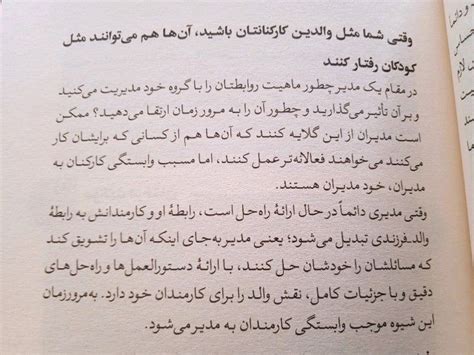 وقتی شما مثل والدین کارکنانتان باشید، آن‌ها هم می‌توانند مثل
کودکان رفتار کنند
در مقام یک مدیر چطور ماهیت روابطتان را با گروه خود مدیریت می‌کنید
و بر آن تأثیر می‌گذارید و چطور آن را به مرور زمان ارتقا می‌دهید؟ ممکن
است مدیران از این گلایه کنند که آن‌ها هم از کسانی که برایشان کار
می‌کنند می‌خواهند فعالانه‌تر عمل کنند، اما مسبب وابستگی کارکنان به
مدیران، خود مدیران هستند.
وقتی مدیری دائماً در حال ارائهٔ راه‌حل است، رابطهٔ او و کارمندانش به رابطهٔ
والد_فرزندی تبدیل می‌شود؛ یعنی مدیر به‌جای اینکه آن‌ها را تشویق کند
که مسائلشان را خودشان حل کنند، با ارائهٔ دستورالعمل‌ها و راه‌حل‌های
دقیق و با جزئیات کامل، نقش والد را برای کارمندان خود دارد. به‌مرورزمان
این شیوه موجب وابستگی کارمندان به مدیر می‌شود.
و دائماً
حساس
لازم